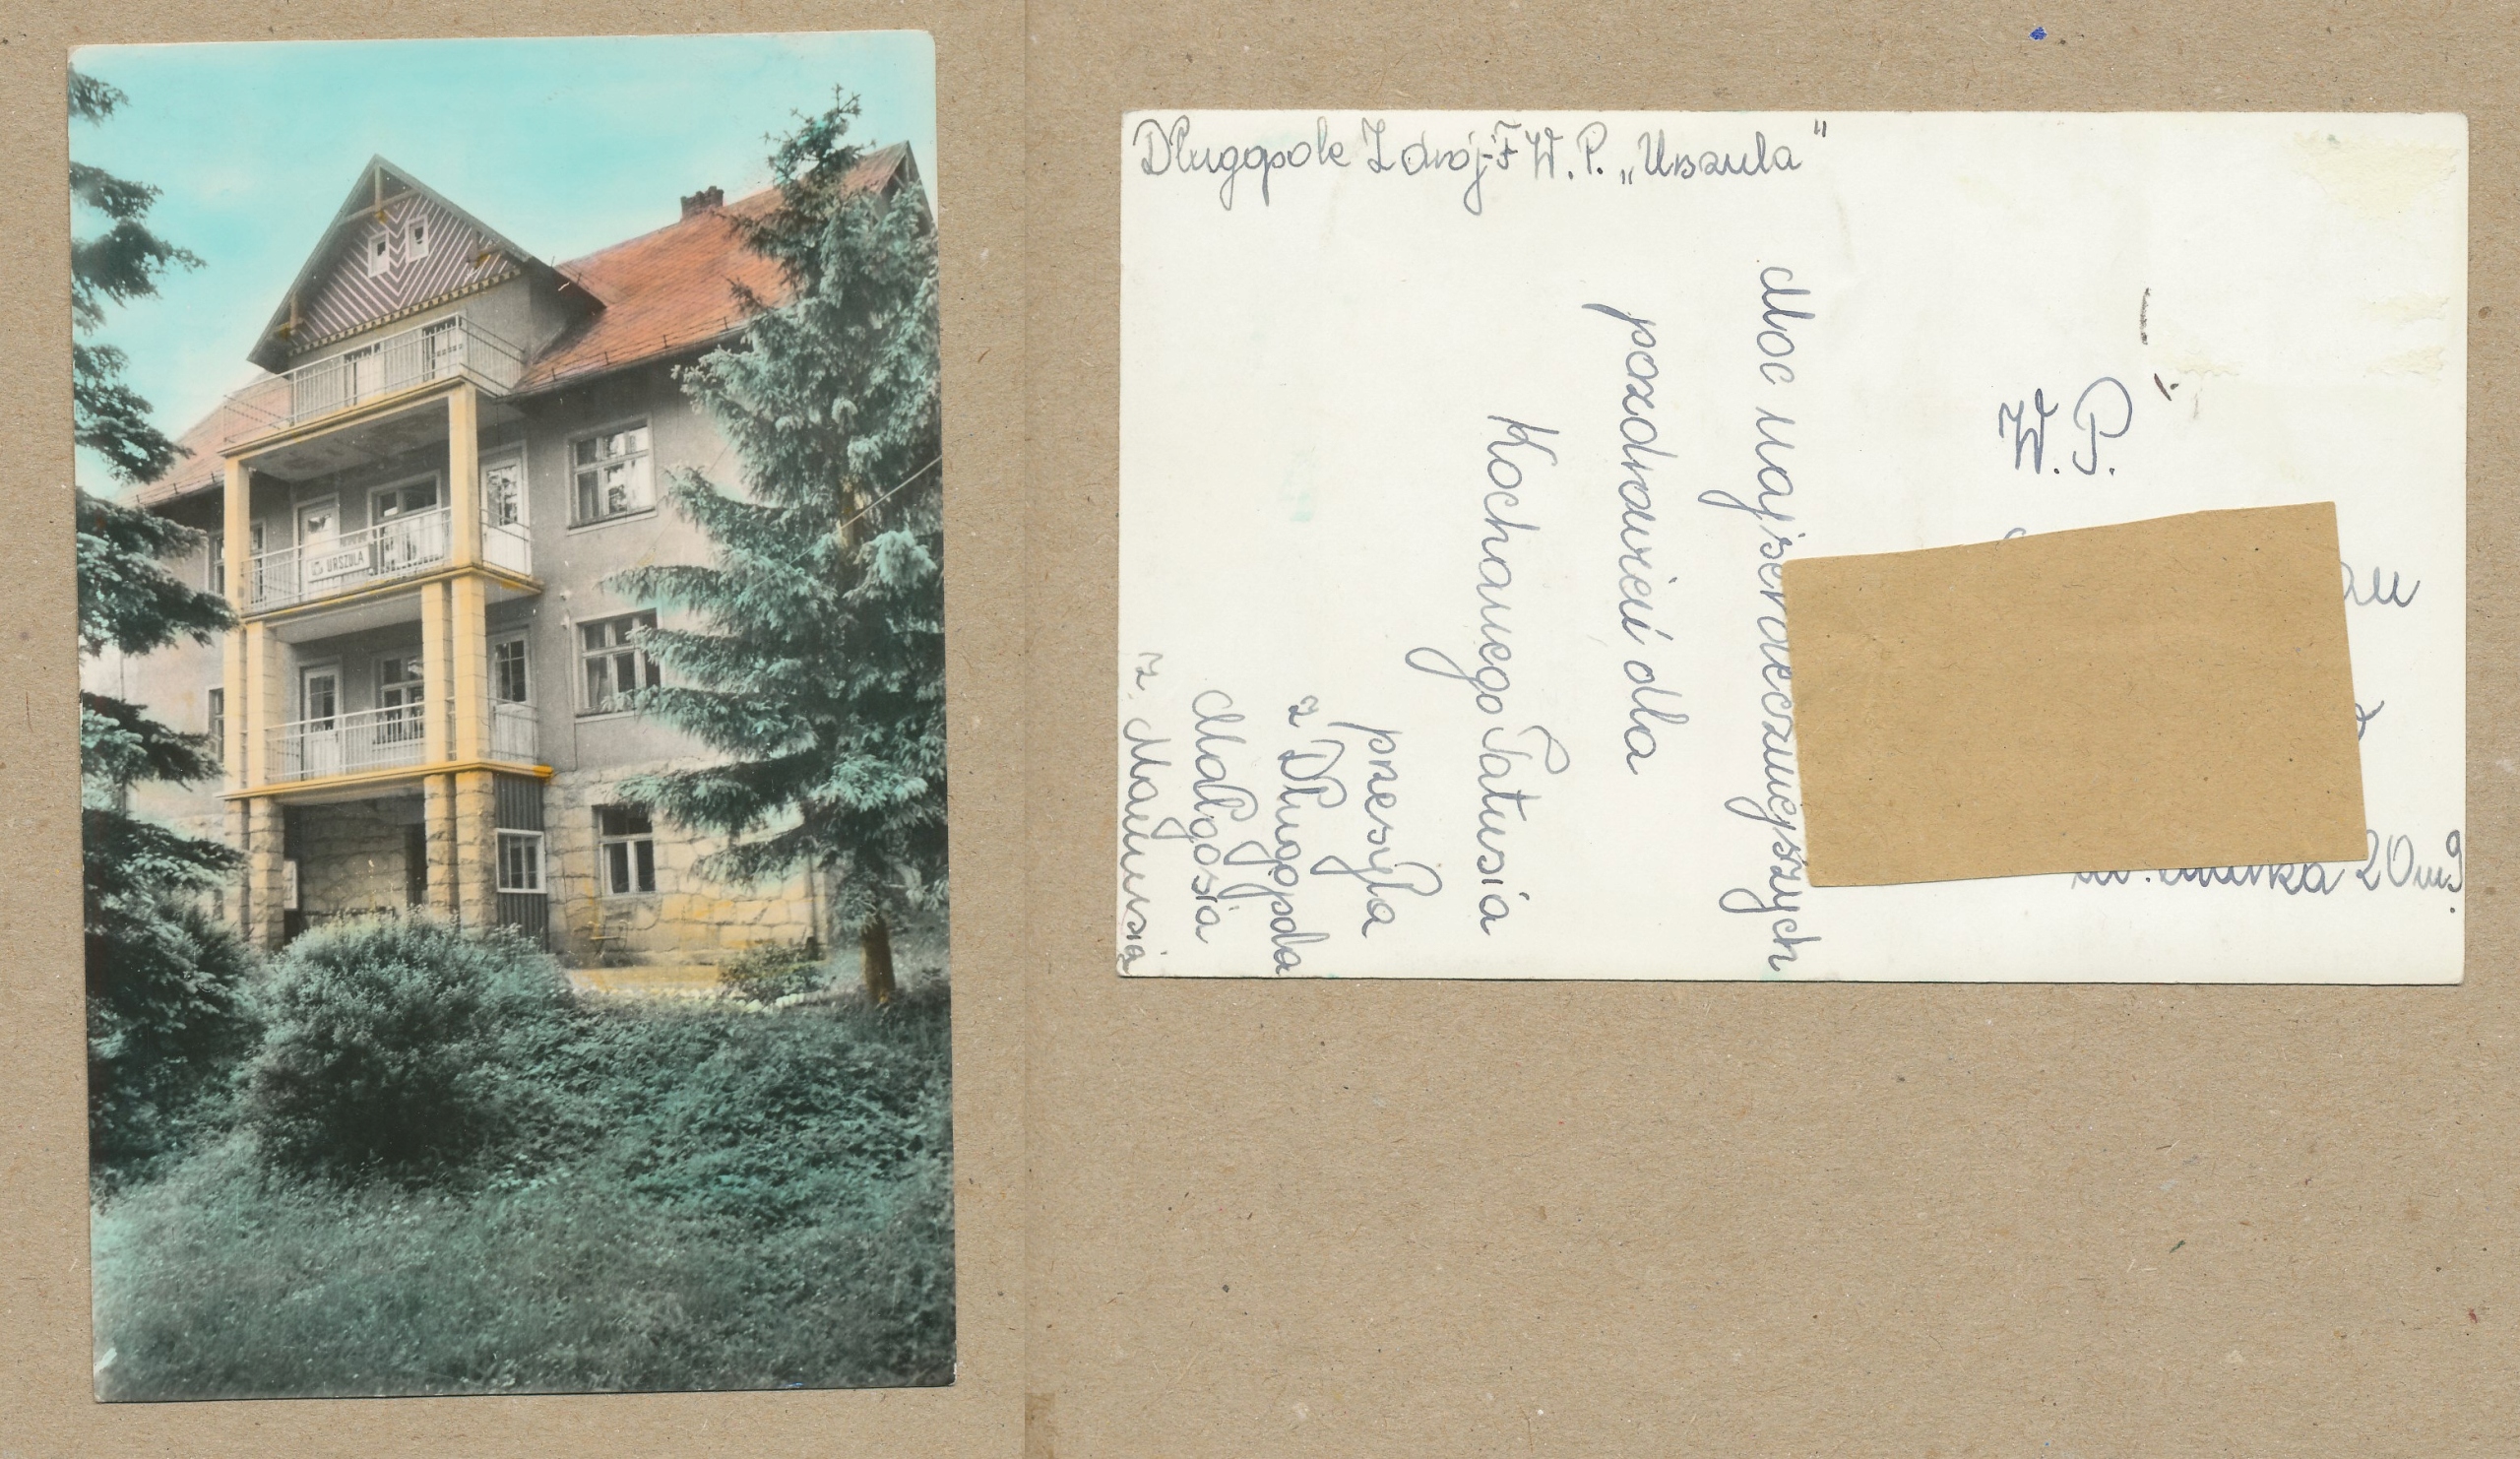 URSZULA
Długopole Zdrój-FW.P. „Urszula"
Moc najserdeczniejszych
pozdrowień dla
Kochanego Tatusia
przesyła
z Długopola
Małgosia
z Mamusią
W.P.
20 m 9.